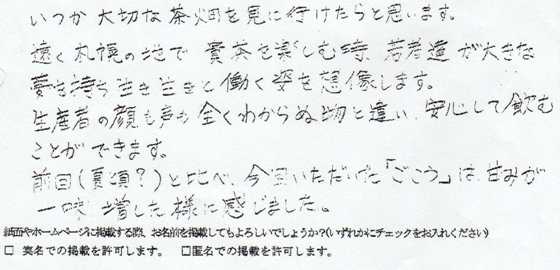 いつか大切な茶畑を見に行けたらと思います。
遠く札幌の地で 貴茶を楽しむ時、若者達が大きな
夢を持ち生き生きと働く姿を想像します。
生産者の顔も声も全くわからぬ物と違い、安心して飲む
ことができます。
前回(夏頃?)と比べ、今回いただいた「ごこう」は、甘みが
一味、増した様に感じました。
紙面やホームページに掲載する際、お名前を掲載してもよろしいでしょうか?(いずれかにチェックをお入れください)
□ 実名での掲載を許可します。 □匿名での掲載を許可します。